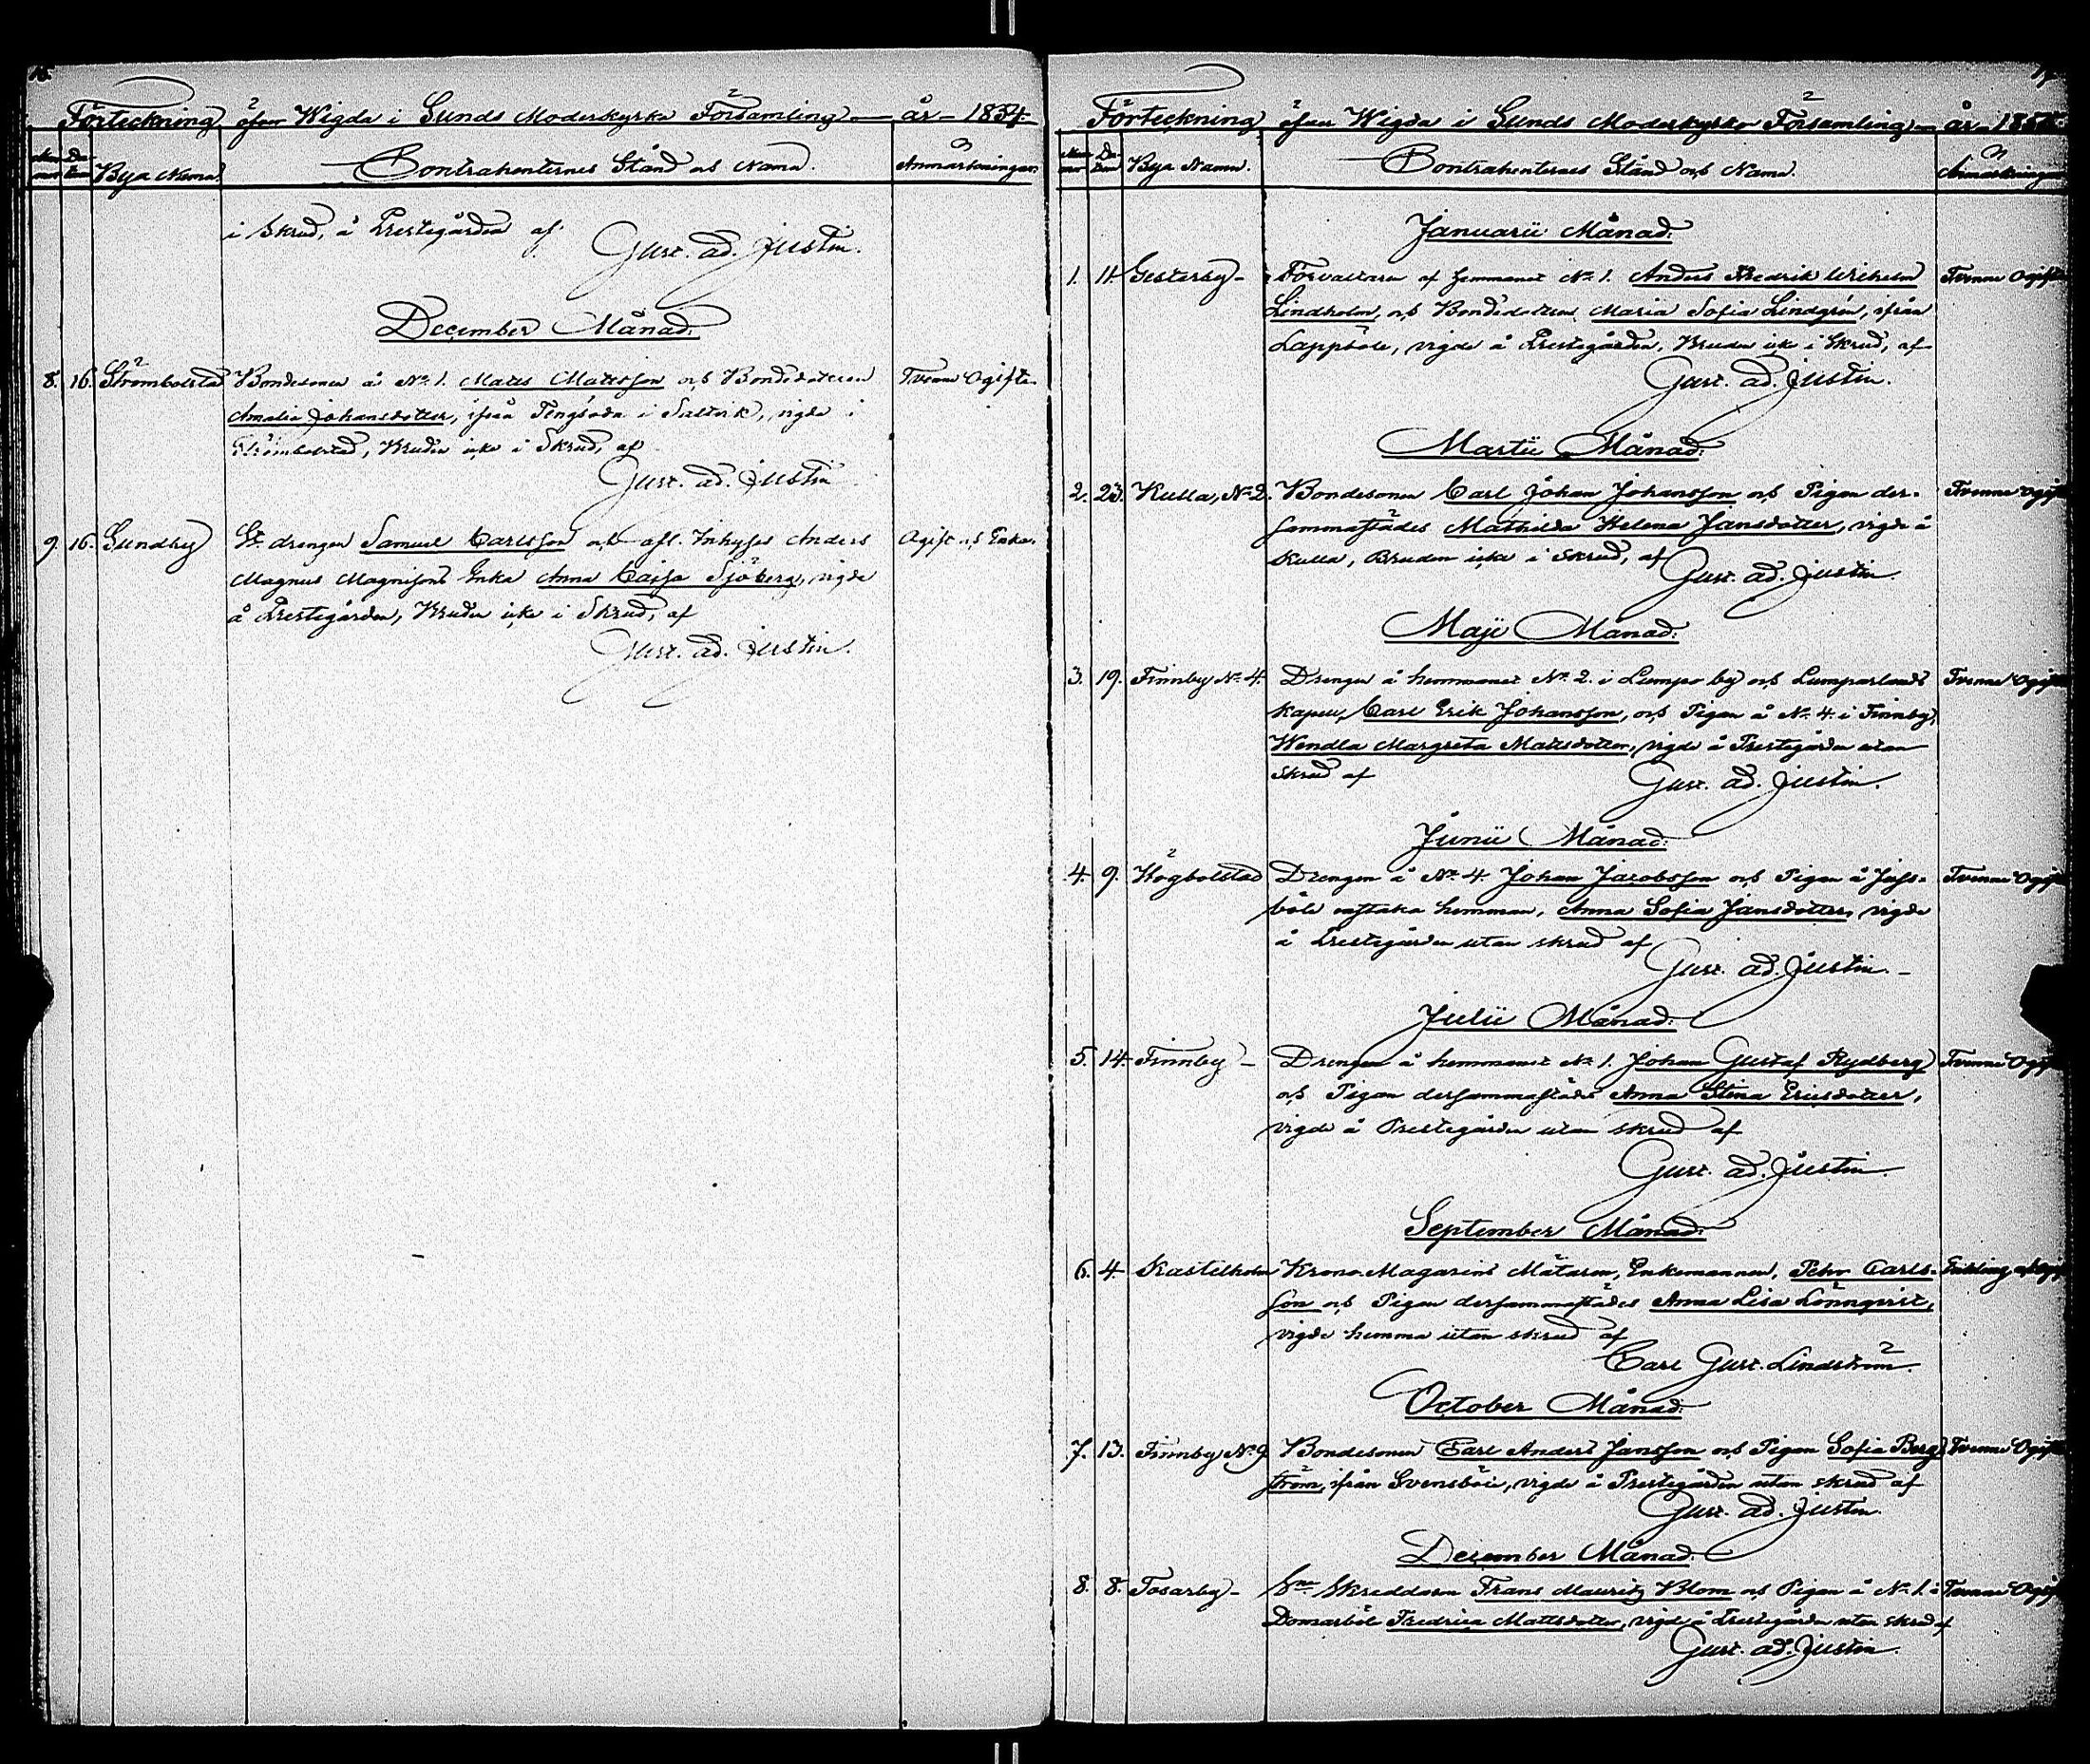 Förteckning öfver Wigda i Sunds Moderkyrko Församling år 1854.
Num- mer
Da- tum
Bya Namn.
Contrahenternes Stånd och Namn.
Anmärkningar.
i Skrud, å Prestegården af
Gust. Ad. Justin.
December Månad.
8. 16. Strömbolstad Bondesonen å No. 1. Matts Mattsson och Bondedottren Tvenne Ogifte.
Amalia Johansdotter, ifrån Tengsoda i Saltvik, vigde i
Strömbolstad, Bruden icke i Skrud, af
Gust. Ad. Justin
9. 16. Sundby St. drengen Samuel Carlsson och afl. Inhyses Anders Ogift och Enka.
Magnus Magnissons Enka Anna Cajsa Sjöberg, vigde
å Prestegården, Bruden icke i Skrud, af
Gust. Ad. Justin.
Förteckning öfver Wigda i Sunds Moderkyrko Församling år 1855.
Num- mer
Da- tum
Bya Namn.
Contrahenternes Stånd och Namn.
Anmärkningar
Januarii Månad.
1. 11. Gesterby Förvaltaren af hemmanet No. 1. Anders Fredrik Wilhelm Tvenne Ogifte
Lindholm, och Bondedottren Maria Sofia Lindgrén, ifrån
Lappböle, vigde å Prestegården, Bruden icke i Skrud, af
Gust. Ad. Justin.
Martii Månad.
2. 23. Kulla, No. 2. Bondesonen Carl Johan Johansson och Pigan der- Tvenne Ogifte
sammastädes Mathilda Helena Jansdotter, vigde å
Kulla, Bruden icke i Skrud, af
Gust. Ad. Justin.
Maji Månad.
3. 19. Finnby No. 4. Drengen å hemmanet No. 2. i Lumpo by och Lumparlands Tvenne Ogifte
Kapell, Carl Erik Johansson, och Pigan å No. 4. i Finnby,
Wendla Margreta Mattsdotter, vigde å Prestegården utan
Skrud af
Gust. Ad. Justin.
Junii Månad.
4. 9. Högbolstad Drengen å No. 4. Johan Jacobsson och Pigan å Juss- Tvenne Ogifte
böle enstaka hemman, Anna Sofia Jansdotter, vigde
å Prestegården utan skrud af
Gust. Ad. Justin.
Julii Månad.
5. 14. Finnby Drengen å hemmanet No. 1. Johan Gustaf Rydberg Tvenne Ogifte
och Pigan dersammastädes Anna Stina Ericsdotter,
vigde å Prestegården utan skrud af
Gust. Ad. Justin.
September Månad.
6. 4. Kastelholm Krono Magasins Mätaren, Enkemannen, Petter Carls- Enkling och Ogift
son och Pigan dersammastädes Anna Lisa Lönnqvist,
vigde hemma utan skrud af
Carl Gust. Lindström.
October Månad.
7. 13. Finnby No. 9 Bondesonen Carl Anders Jansson och Pigan Sofia Berg- Tvenne Ogifte
ström, ifrån Svensböle, vigde å Prestegården utan skrud af
Gust. Ad. Justin.
December Månad.
8. 8. Tosarby Skreddaren Frans Mauritz Blom och Pigan å No. 1. i Tvenne Ogifte
Domarböle Fredrica Mattsdotter, vigde å Prestegården utan skrud af
Gust. Ad. Justin.